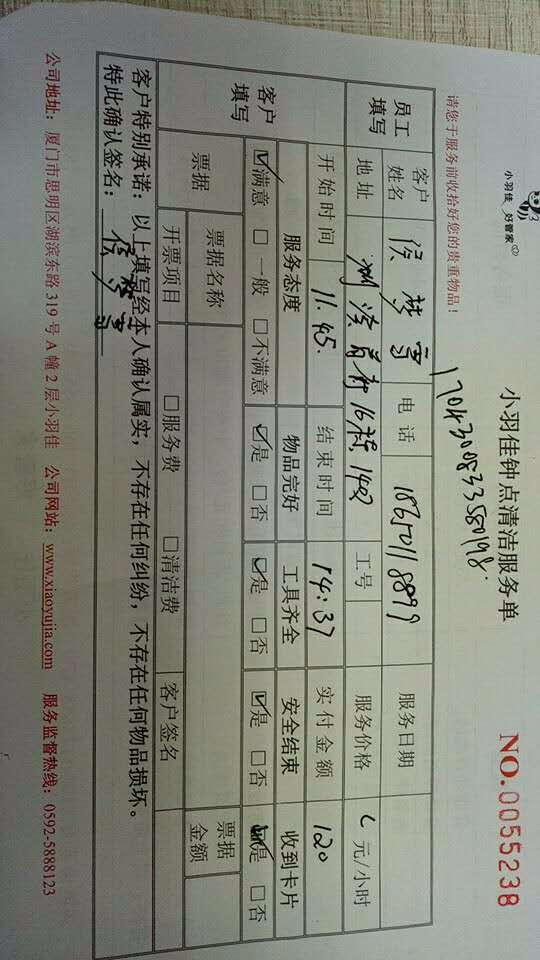 小羽佳 好管家
小羽佳钟点清洁服务单
NO.0055238
请您于服务前收拾好您的贵重物品！
员工填写 客户姓名 梦雪 电话 服务日期
地址 16 1402 工号 服务价格 元/小时
开始时间 11.45. 结束时间 14:37 实付金额 120
客户填写 服务态度 物品完好 工具齐全 安全结束 收到卡片
☑满意 □一般 □不满意 ☑是 □否 ☑是 □否 ☑是 □否 ☑是 □否
票据 票据名称 客户签名 票据金额
开票项目 □服务费 □清洁费
客户特别承诺：以上填写经本人确认属实，不存在任何纠纷，不存在任何物品损坏。
特此确认签名： 梦雪
公司地址：厦门市思明区湖滨东路 319 号 A 幢 2 层小羽佳 公司网站：www.xiaoyujia.com 服务监督热线：0592-5888123